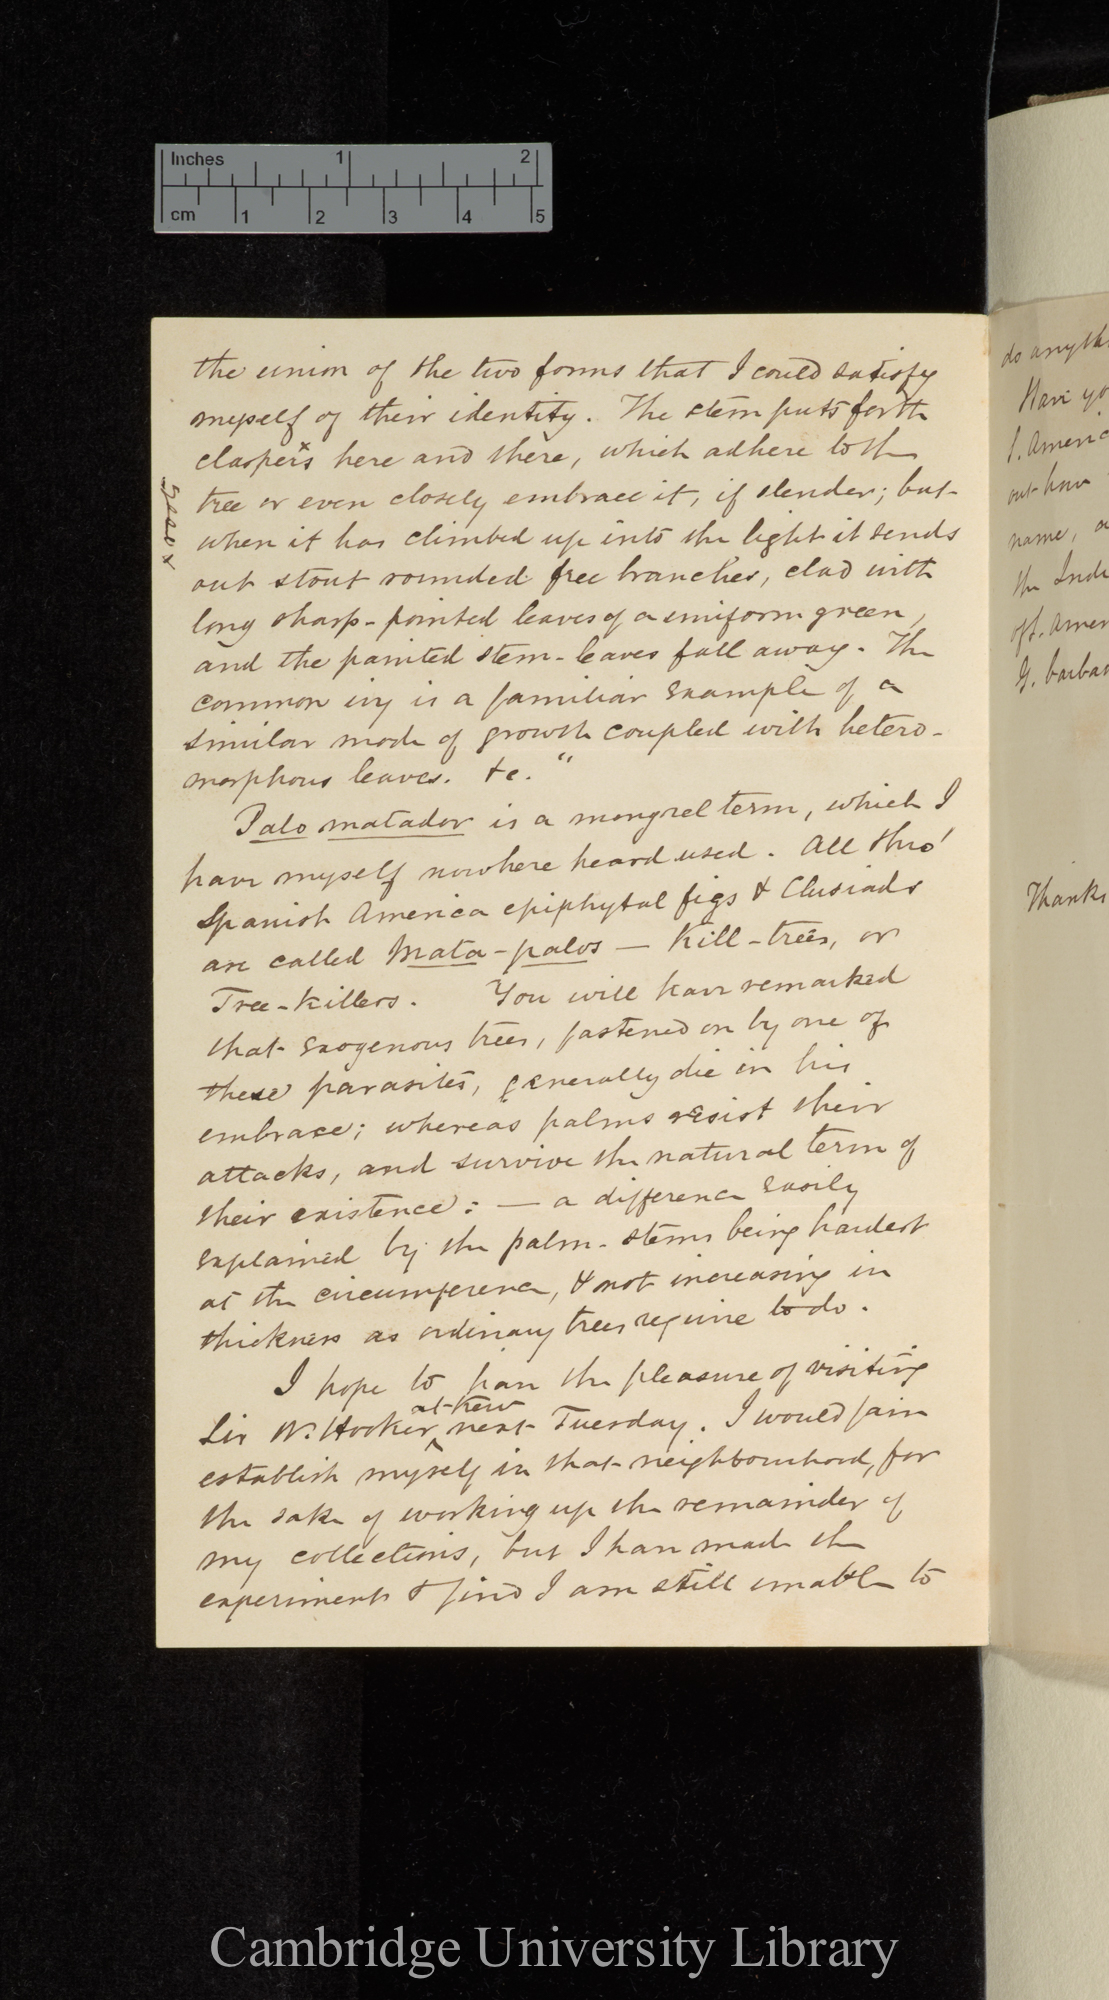 Inches 1 2
cm 1 2 3 4 5
the union of the two forms that I could satisfy
myself of their identity. The stem puts forth
claspers x here and there, which adhere to the
tree or even closely embrace it, if slender; but
when it has climbed up into the light it sends
out stout rounded free branches, clad with
long sharp-pointed leaves of a uniform green,
and the painted stem-leaves fall away. The
common ivy is a familiar example of a
similar mode of growth coupled with hetero-
morphous leaves. &c."
Palo matador is a mongrel term, which I
have myself nowhere heard used. All thro'
Spanish America epiphytal figs & Clusiads
are called Mata-palos — Kill-trees, or
Tree-killers. You will have remarked
that exogenous trees, fastened on by one of
these parasites, generally die in his
embrace; whereas palms resist their
attacks, and survive the natural term of
their existence: — a difference easily
explained by the palm-stems being hardest
at the circumference, & not increasing in
thickness as ordinary trees require to do.
I hope to have the pleasure of visiting
at Kew
Sir W. Hooker ^ next Tuesday. I would fain
establish myself in that neighbourhood, for
the sake of working up the remainder of
my collections, but I have made the
experiment & find I am still unable to
do anyth
Have yo
S. Americ
out how
name, a
the Indi
of S. Amer
G. barbad
Thanks
Cambridge University Library